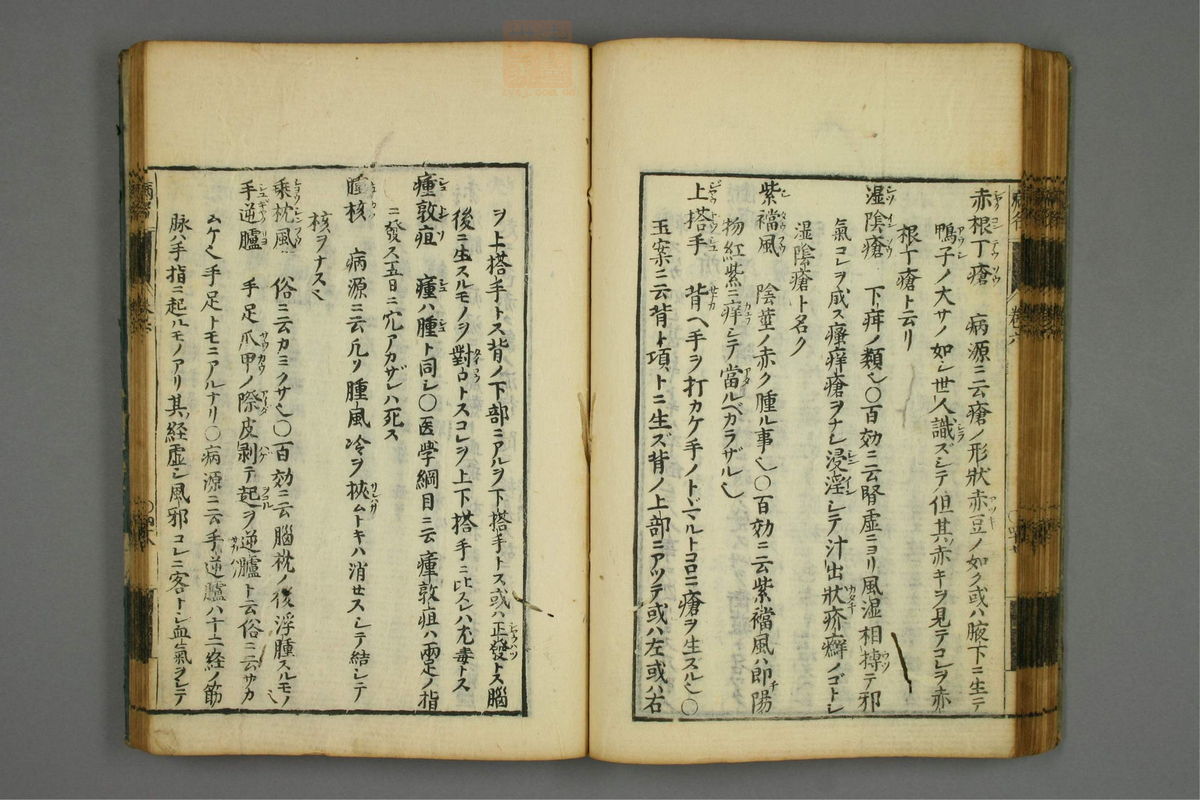 赤根丁瘡 病源ニ云瘡ノ形狀赤豆ノ如ク或ハ腋下ニ生テ
鴨子ノ大サノ如シ世人識ズシテ但其赤キヲ見テコレヲ赤
根丁瘡ト云リ
湿陰瘡 下疳ノ類也〇百効ニ云腎虚ヨリ風湿相搏テ邪
氣コレヲ成ス瘙痒瘡ヲナシ浸淫シテ汁出狀疥癬ノゴトシ
湿陰瘡ト名ク
紫襠風 陰莖ノ赤ク腫ル事也〇百効ニ云紫襠風ハ即陽
物紅紫ニ痒シテ當ルベカラザル也
上搭手 背ヘ手ヲ打カケ手ノトヾマルトコロニ瘡ヲ生スル也〇
玉案ニ云背ト項トニ生ズ背ノ上部ニアツテ或ハ左或ハ右
ヲ上搭手トス背ノ下部ニアルヲ下搭手トス或ハ正發トス腦
後ニ生スルモノヲ對口トスコレヲ上下搭手ニ比スレハ尤毒トス
瘇敦疽 瘇ハ腫ト同シ〇医学綱目ニ云瘇敦疽ハ兩足ノ指
ニ發ス五日ニ穴アカザレハ死ス
腫核 病源ニ云凡ソ腫風冷ヲ挾ムトキハ消セスシテ結シテ
核ヲナス也
乘枕風 俗ニ云カミクサ也〇百効ニ云腦枕ノ後浮腫スルモノ也
手逆臚 手足爪甲ノ際皮剥テ起ヲ逆臚ト云俗ニ云サカ
ムケ也手足トモニアルナリ〇病源ニ云手逆臚ハ十二経ノ筋
脉ハ手指ニ起ルモノアリ其経虚シ風邪コレニ客トシ血氣ヲシテ